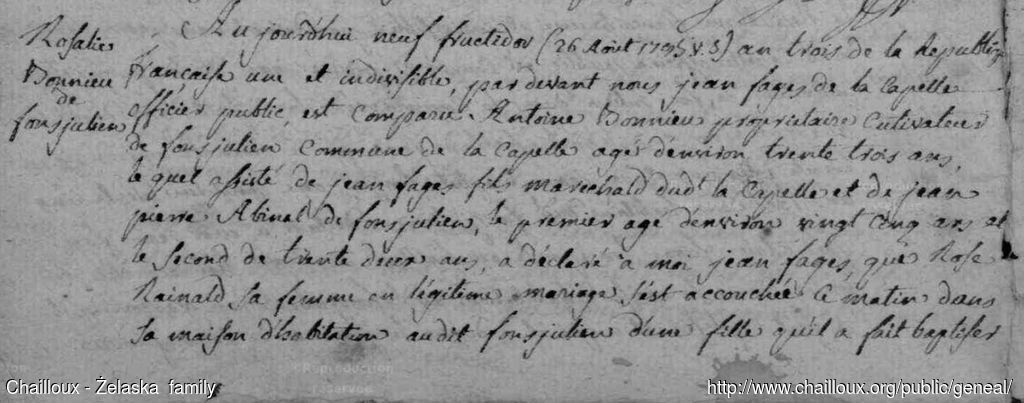 Rosalie
Bonnieu
de
fonsjulien
Aujourd'hui neuf fructidor (26 Aout 1795 V. S) an trois de la Republiq
française une et indivisible, par devant nous jean fages de la Capelle
officier public, est comparu Antoine Bonnieu proprietaire Cutivateur
de fonsjulien Commune de la Capelle agé d'environ trente trois ans,
le quel assisté de jean fages fils marechal dud.t la Capelle et de jean
pierre Abinal de fonsjulien, le premier agé d'environ vingt cinq ans et
le second de trente deux ans, a déclaré à moi jean fages, que Rose
Rainald sa femme en légitime mariage s'est accouchée ce matin dans
sa maison d'habitation audit fonsjulien d'une fille qu'il a fait baptiser
Reproduction
reservee
Chailloux - Żelaska family
http://www.chailloux.org/public/geneal/